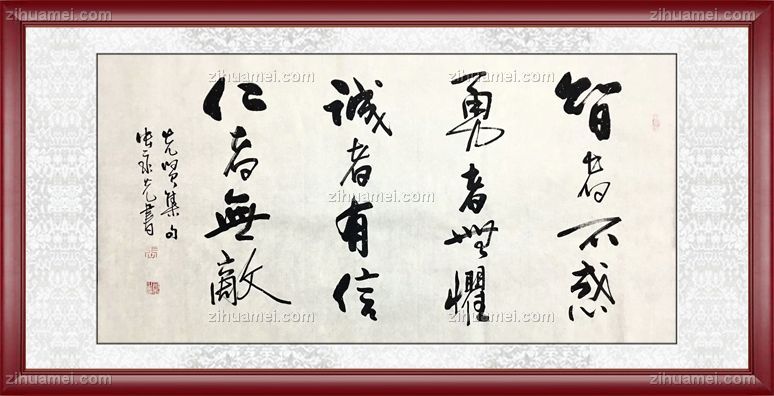 智者不惑
勇者無懼
誠者有信
仁者無敵
先賢集句
張永光書
zihuamei.com
zihuamei.com
zihuamei.com
zihuamei.com
zihuamei.com
zihuamei.com
zihuamei.com
zihuamei.com
zihuamei.com
zihuamei.com